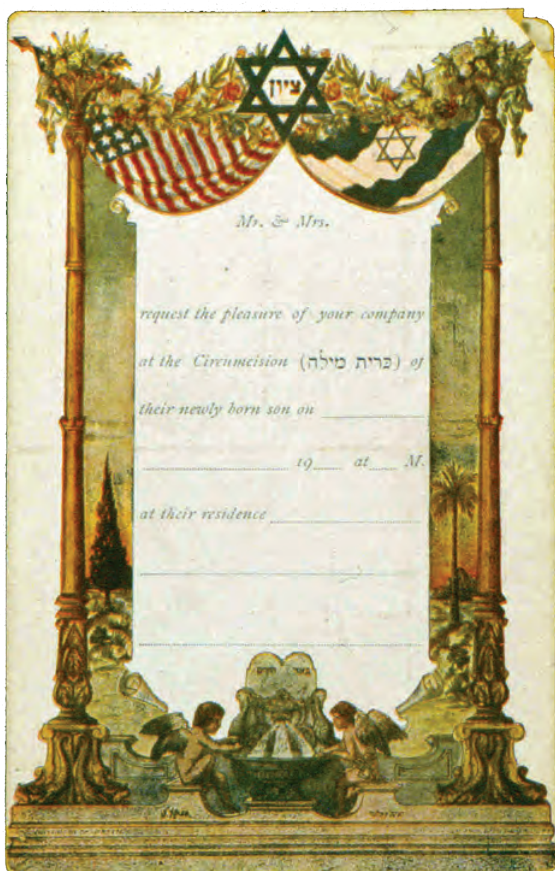 ציון
Mr. & Mrs.
request the pleasure of your company
at the Circumcision (ברית מילה) of
their newly born son on
19 at M.
at their residence
באר חיים